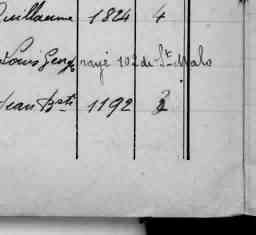 Guillaume 1824 4
Louis Georg rayé 102 de St Malo
Jean Bte 1192 2